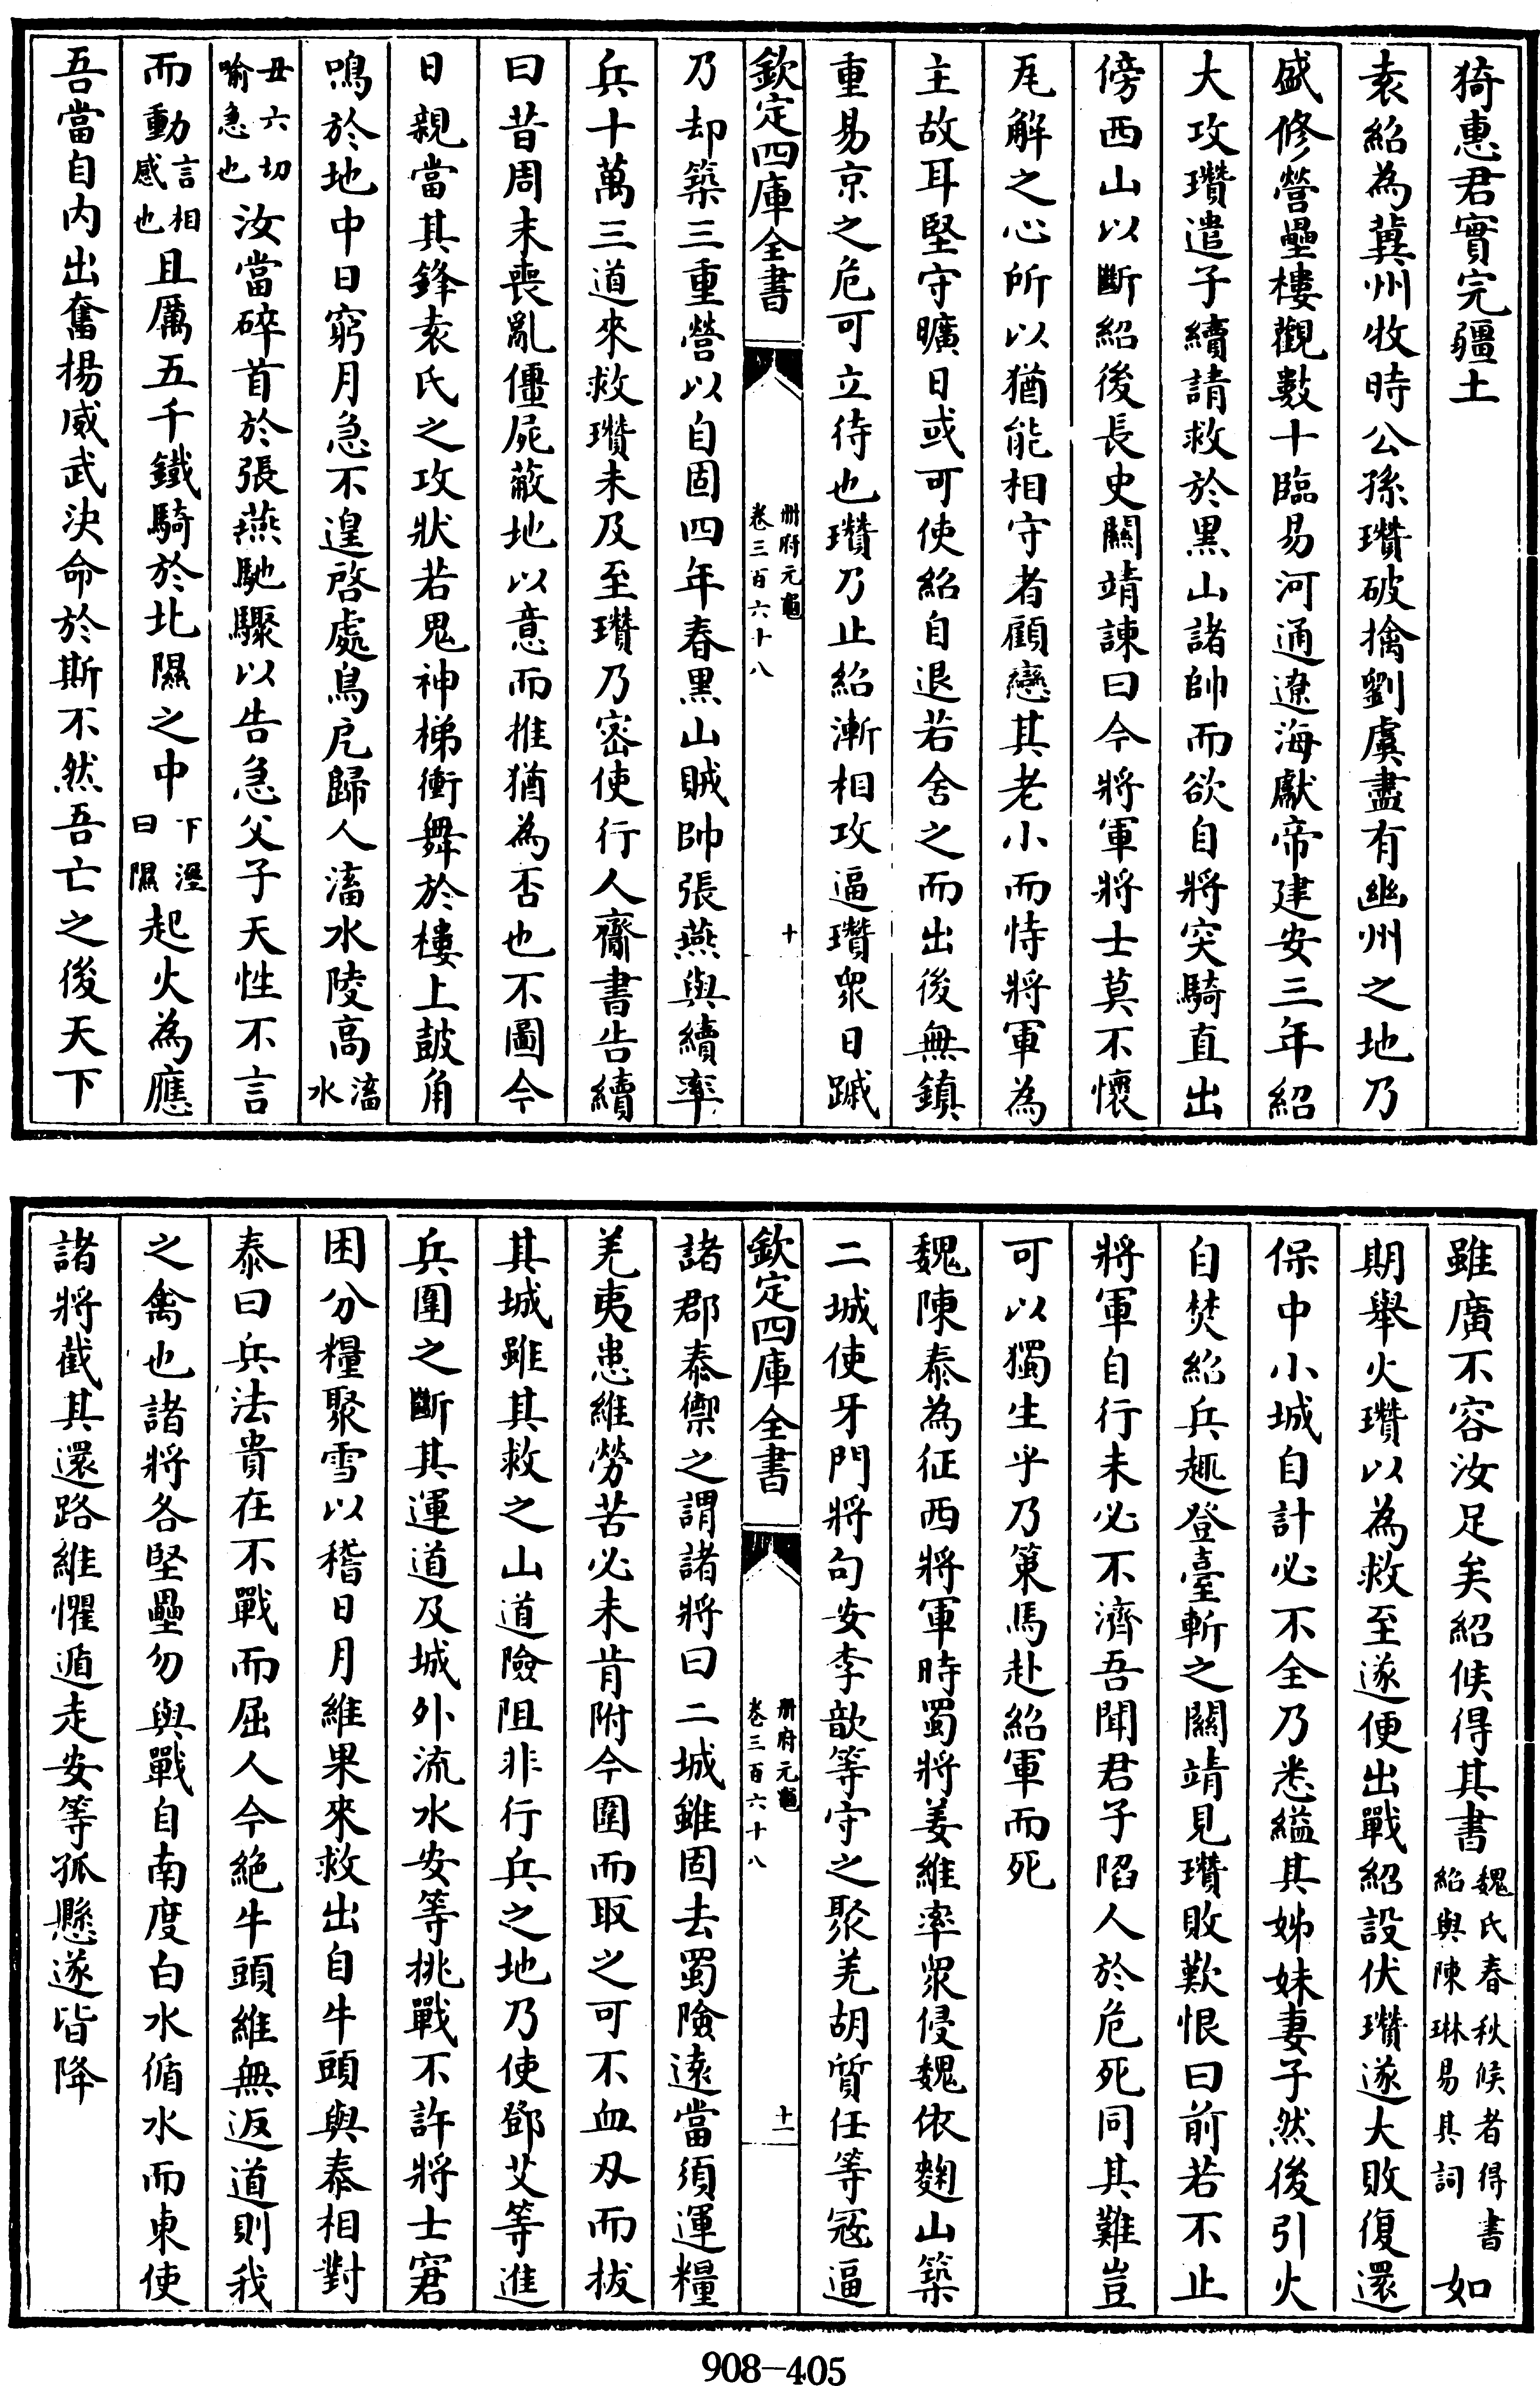 猗惠君實完疆土
袁紹為冀州牧時公孫瓚破擒劉虞盡有幽州之地乃
盛修營壘樓觀數十臨易河通遼海獻帝建安三年紹
大攻瓚遣子續請救於黑山諸帥而欲自將突騎直出
傍西山以斷紹後長史關靖諫曰今將軍將士莫不懷
瓦解之心所以猶能相守者顧戀其老小而恃將軍為
主故耳堅守曠日或可使紹自退若舍之而出後無鎮
重易京之危可立待也瓚乃止紹漸相攻逼瓚眾日蹴
欽定四庫全書
冊府元龜
卷三百六十八
十
乃却築三重營以自固四年春黑山賊帥張燕與續率
兵十萬三道來救瓚未及至瓚乃密使行人齎書告續
曰昔周末喪亂僵屍蔽地以意而推猶為否也不圖今
日親當其鋒袁氏之攻狀若鬼神梯衝舞於樓上鼓角
鳴於地中日窮月急不遑啓處鳥戹歸人滀水陵高滀水
丑六切喻急也汝當碎首於張燕馳驟以告急父子天性不言
而動言相感也且厲五千鐵騎於北隰之中下溼曰隰起火為應
吾當自內出奮揚威武決命於斯不然吾亡之後天下
雖廣不容汝足矣紹候得其書魏氏春秋候者得書紹與陳琳易其詞如
期舉火瓚以為救至遂便出戰紹設伏瓚遂大敗復還
保中小城自計必不全乃悉縊其姊妹妻子然後引火
自焚紹兵趣登臺斬之關靖見瓚敗歎恨曰前若不止
將軍自行未必不濟吾聞君子陷人於危死同其難豈
可以獨生乎乃策馬赴紹軍而死
魏陳泰為征西將軍時蜀將姜維率眾侵魏依麴山築
二城使牙門將句安李歆等守之聚羌胡質任等寇逼
欽定四庫全書
冊府元龜
卷三百六十八
十一
諸郡泰禦之謂諸將曰二城雖固去蜀險遠當須運糧
羌夷患維勞苦必未肯附今圍而取之可不血刃而拔
其城雖其救之山道險阻非行兵之地乃使鄧艾等進
兵圍之斷其運道及城外流水安等挑戰不許將士窘
困分糧聚雪以稽日月維果來救出自牛頭與泰相對
泰曰兵法貴在不戰而屈人今絕牛頭維無返道則我
之禽也諸將各堅壘勿與戰自南度白水循水而東使
諸將截其還路維懼遁走安等孤懸遂皆降
908-405